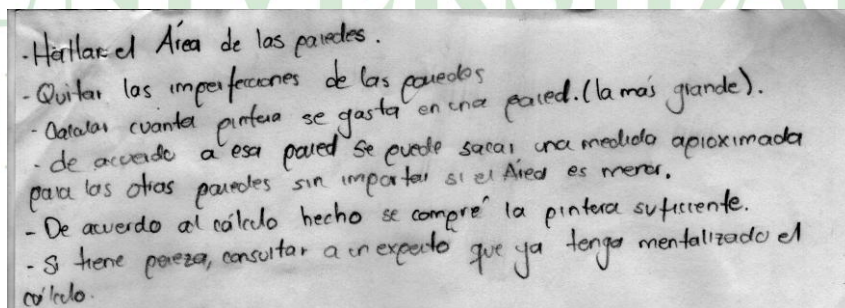 - Hallar el Área de las paredes.
- Quitar las imperfecciones de las paredes
- Calcular cuanta pintura se gasta en una pared. (la más grande).
- de acuerdo a esa pared se puede sacar una medida aproximada
para las otras paredes sin importar si el Área es menor.
- De acuerdo al cálculo hecho se compre la pintura suficiente.
- Si tiene pereza, consultar a un experto que ya tenga mentalizado el
cálculo.